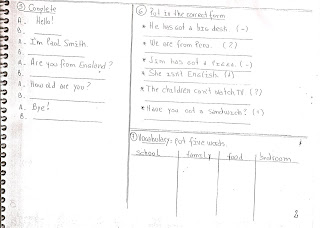 ③ Complete
A. Hello!
B.
A. I'm Paul Smith.
B.
A. Are you from England?
B.
A. How old are you?
B.
A. Bye!
B.
⑥ Put in the correct form
* He has got a big desk. (-)
* We are from Peru. (?)
* Sam has got a (-)
* She isn't English. (+)
* The children can't watch TV. (?)
* Have you got a sandwich? (+)
⑦ Vocabulary: put five words.
school family food bedroom